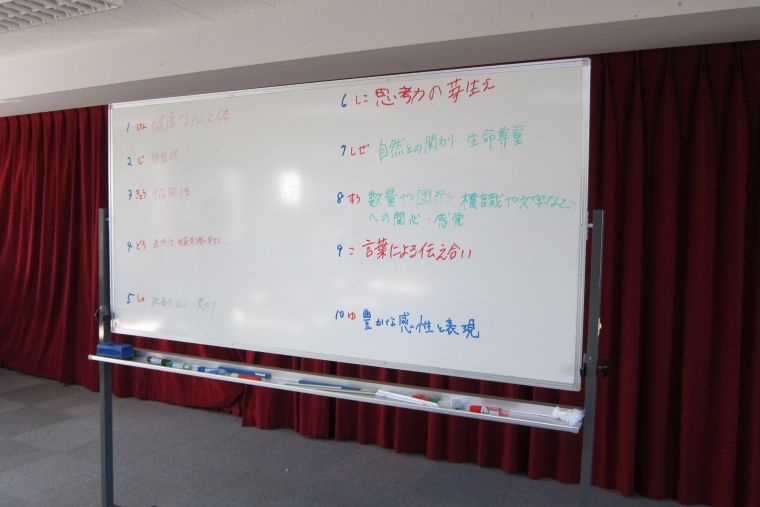 1 けん 健康な心と体
2 じ 自立心
3 きょう 協同性
4 どう 道徳性・規範意識の芽生え
5 しゃ 社会生活との関わり
6 しこ 思考力の芽生え
7 しぜ 自然との関わり・生命尊重
8 すう 数量や図形、標識や文字など
への関心・感覚
9 こ 言葉による伝え合い
10 ゆ 豊かな感性と表現